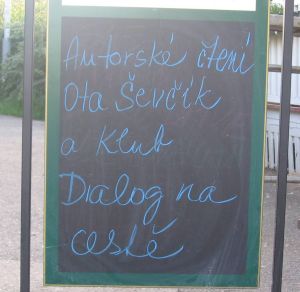 Autorské čtení
Ota Ševčík
a Klub
Dialog na
cestě